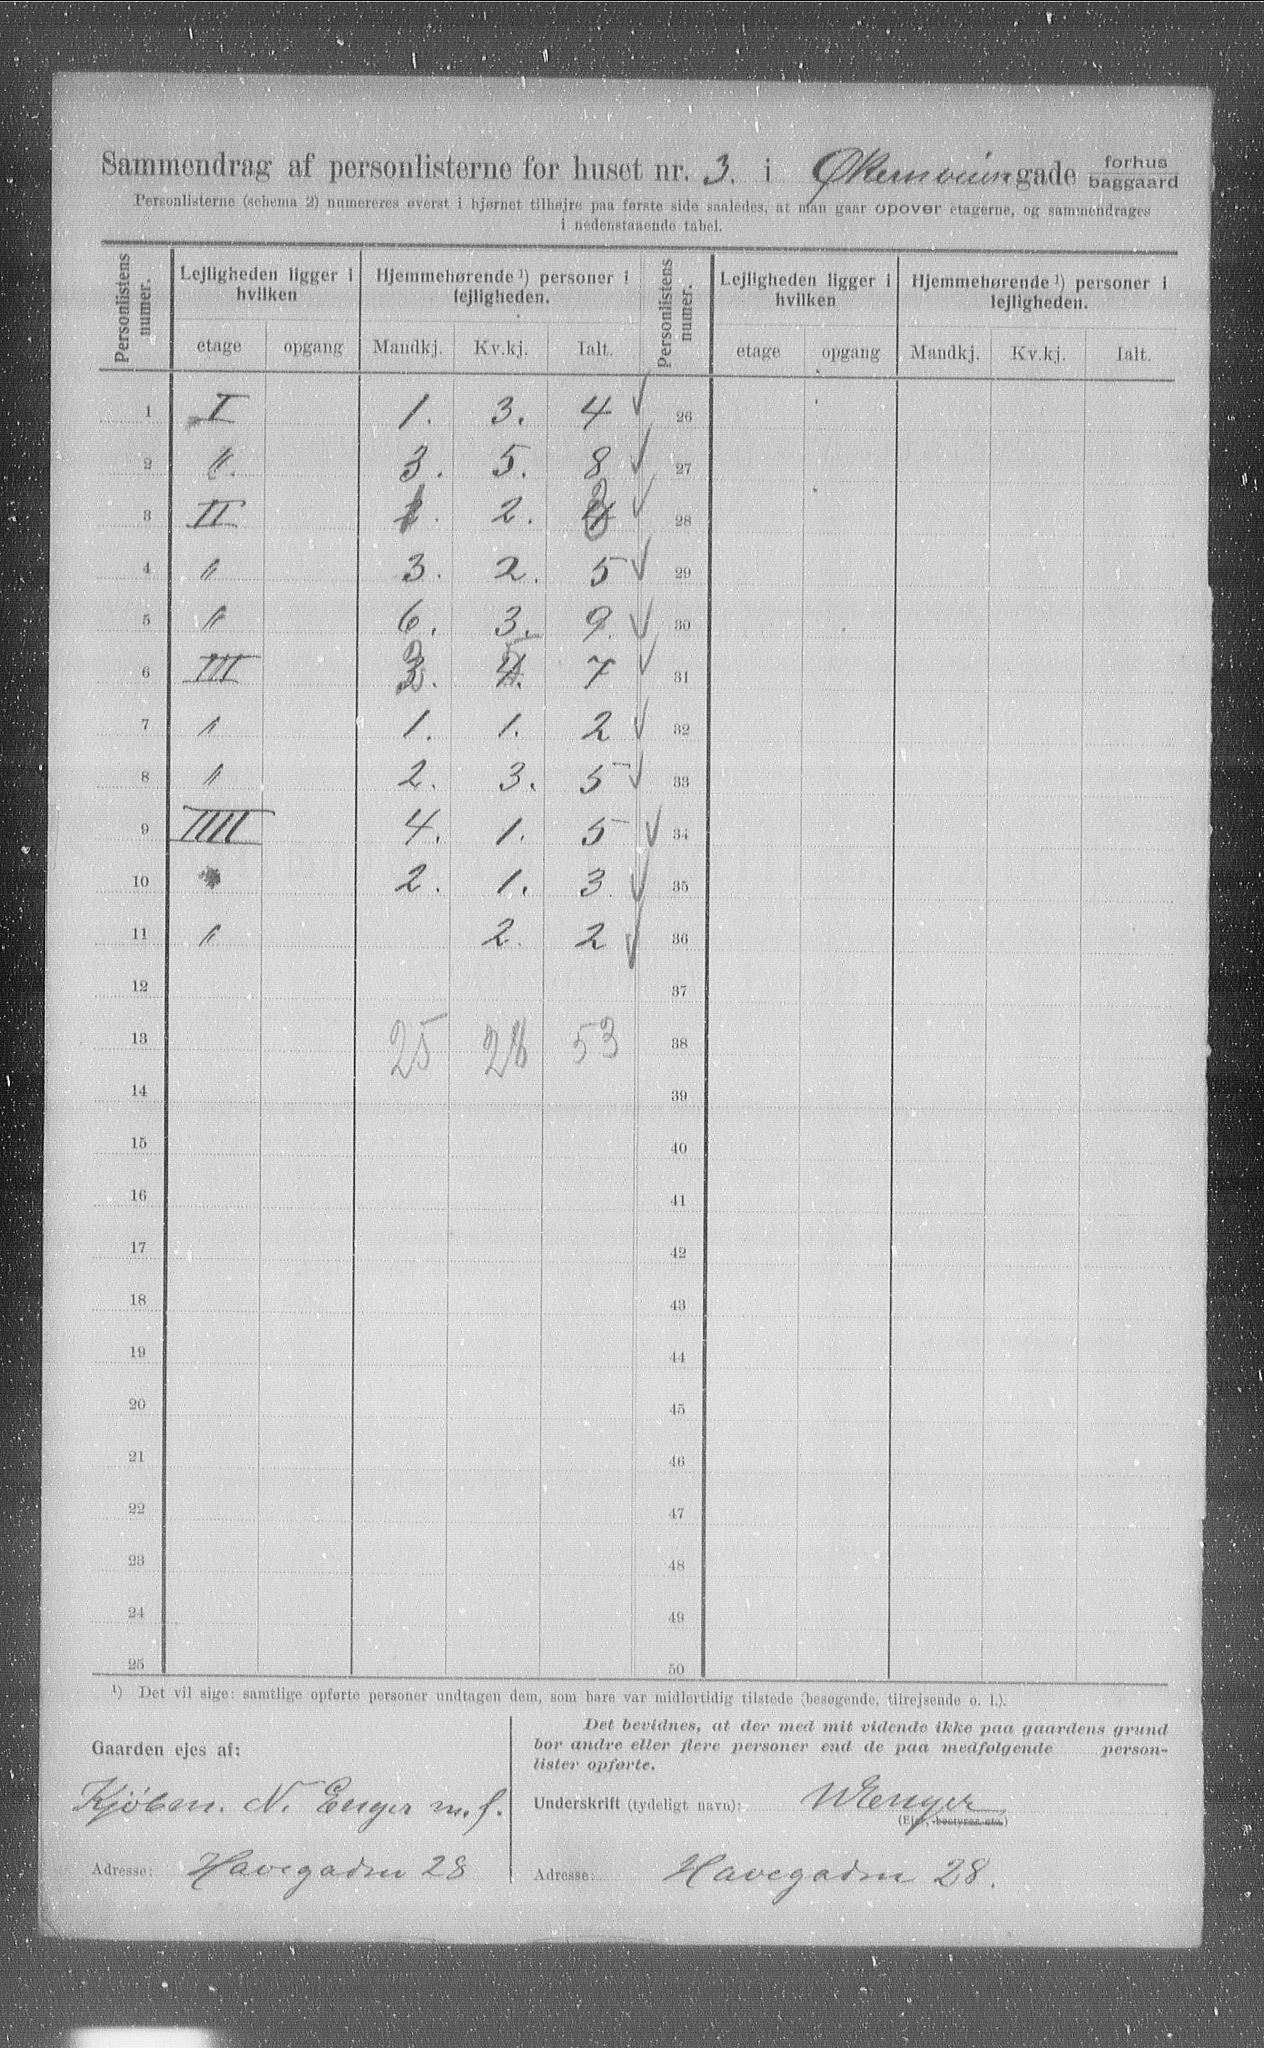 Sammendrag af personlisterne for huset nr. 3. i Økernveien gade forhus baggaard
Personlisterne (schema 2) numereres øverst i hjørnet tilhøjre paa første side saaledes, at man gaar opover etagerne, og sammendrages
i nedenstaaende tabel.
Personlistens numer. Lejligheden ligger i hvilken Hjemmehørende ¹) personer i lejligheden. Personlistens numer. Lejligheden ligger i hvilken Hjemmehørende ¹) personer i lejligheden.
etage opgang Mandkj. Kv.kj. Ialt. etage opgang Mandkj. Kv.kj. Ialt.
1 I 1. 3. 4 ✓ 26
2 〃. 3. 5. 8 ✓ 27
3 II 1. 2. 3 ✓ 28
4 〃 3. 2. 5 ✓ 29
5 〃 6. 3. 9. ✓ 30
6 III 2. 5. 7 ✓ 31
7 〃 1. 1. 2 ✓ 32
8 〃 2. 3. 5 ✓ 33
9 IIII 4. 1. 5 ✓ 34
10 2. 1. 3 ✓ 35
11 〃 2. 2 ✓ 36
12 37
13 25 28 53 38
14 39
15 40
16 41
17 42
18 43
19 44
20 45
21 46
22 47
23 48
24 49
25 50
¹) Det vil sige: samtlige opførte personer undtagen dem, som bare var midlertidig tilstede (besøgende, tilrejsende o. l.).
Gaarden ejes af:
Kjøbm. N. Enger m. f.
Adresse: Havegaden 28
Det bevidnes, at der med mit vidende ikke paa gaardens grund
bor andre eller flere personer end de paa medfølgende person-
lister opførte.
Underskrift (tydeligt navn): NEnger
(Ejer, bestyrer etc.)
Adresse: Havegaden 28.